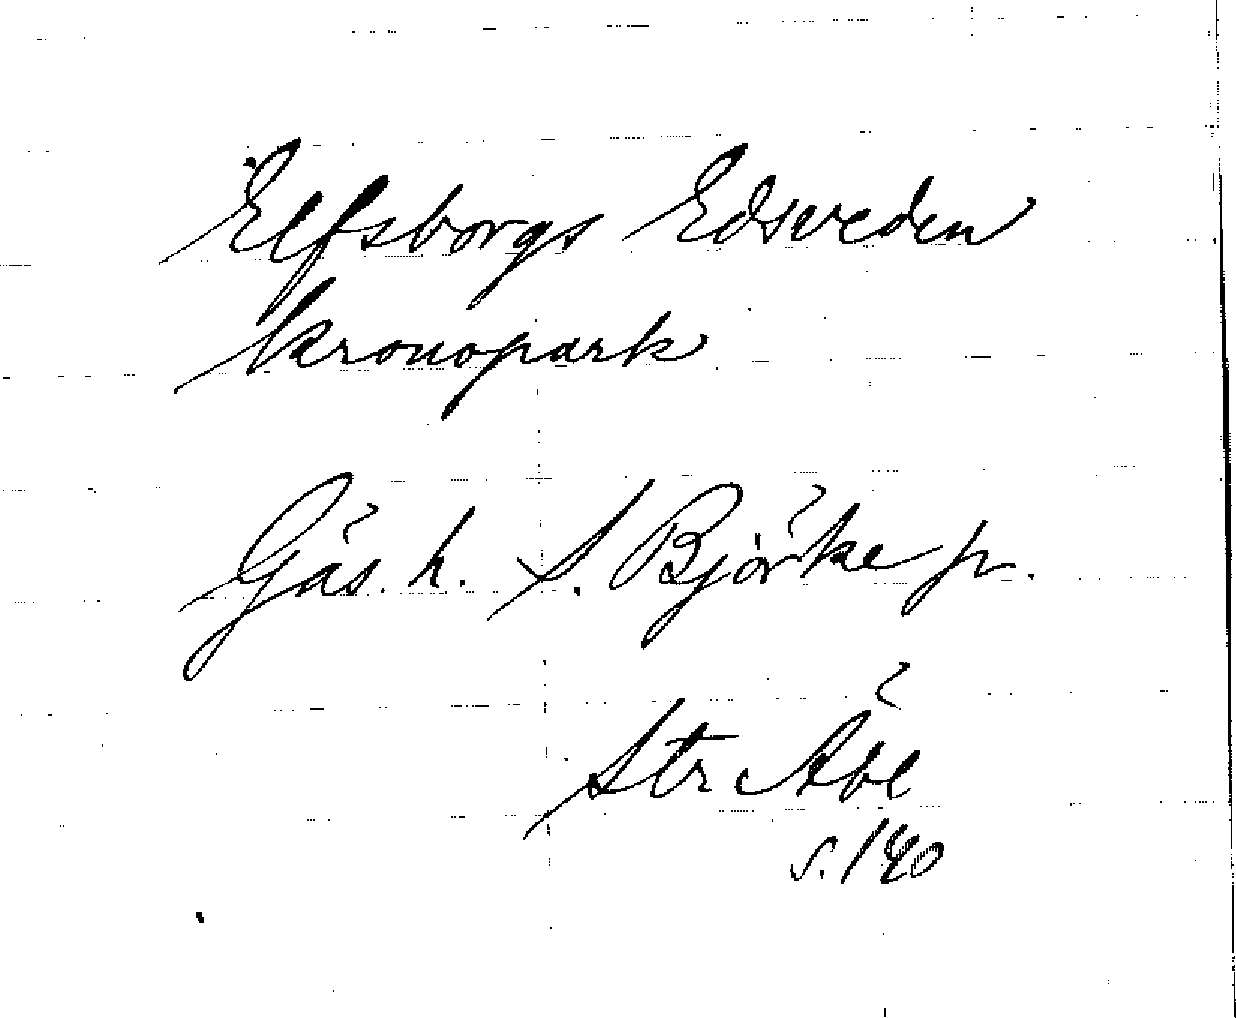 Elfsborgs Edsveden
kronopark
Gäs. h. S. Björke sn.
Str Åbe
s. 140